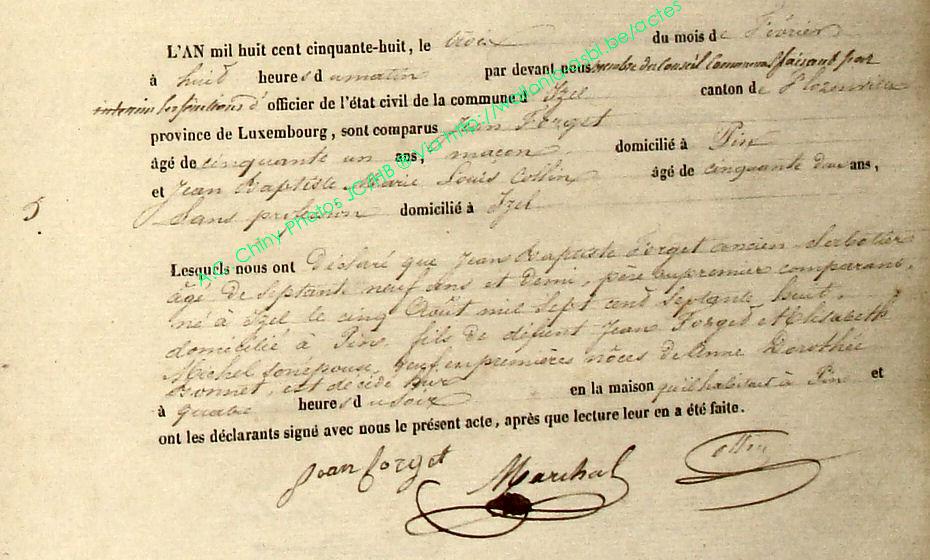 L'AN mil huit cent cinquante-huit, le trois du mois de Février
à huit heures du matin par devant nous membre du Conseil Communal faisant par
interim les fonctions d' officier de l'état civil de la commune d'Izel canton de Florenville
province de Luxembourg, sont comparus Jean Forget
âgé de cinquante un ans, maçon domicilié à Pin
et Jean Baptiste Marie Louis Collin âgé de cinquante deux ans,
Sans profession domicilié à Izel
5
Lesquels nous ont Déclaré que Jean Baptiste Forget ancien
âgé de septante neuf ans et demi, père du premier comparant
né à Izel le cinq Août mil sept cent septante huit,
domicilié à Pin, fils de défunt Jean Forget et Elisabeth
Michel son épouse, veuf en premières nôces de Anne Dorothée
Bonnet, est décédé hier
à quatre heures du soir en la maison qu'il habitait à Pin et
ont les déclarants signé avec nous le présent acte, après que lecture leur en a été faite.
Jean forget Marchal Collin
A.C. Chiny-Photos JCFHB ® Via http://wallonia-asbl.be/actes